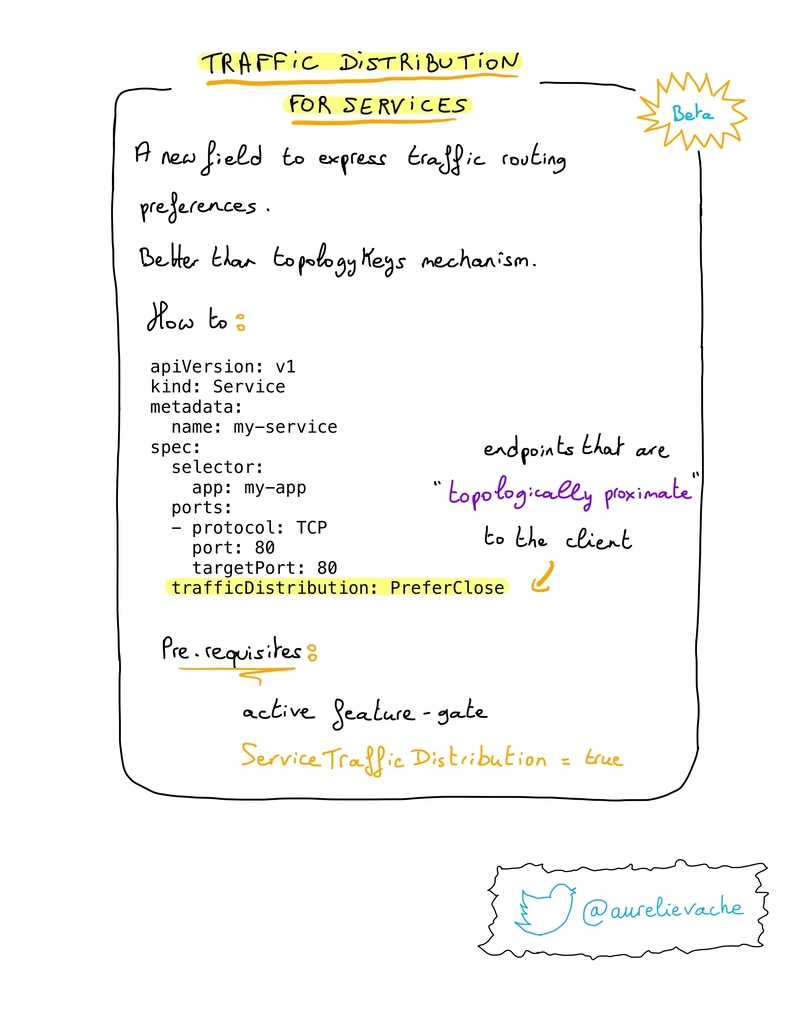 TRAFFIC DISTRIBUTION
FOR SERVICES
Beta
A new field to express traffic routing
preferences.
Better than topologyKeys mechanism.
How to:
apiVersion: v1
kind: Service
metadata:
  name: my-service
spec:
  selector:
    app: my-app
  ports:
  - protocol: TCP
    port: 80
    targetPort: 80
  trafficDistribution: PreferClose
endpoints that are
"topologically proximate"
to the client
Pre-requisites:
active feature-gate
ServiceTrafficDistribution = true
@aurelievache